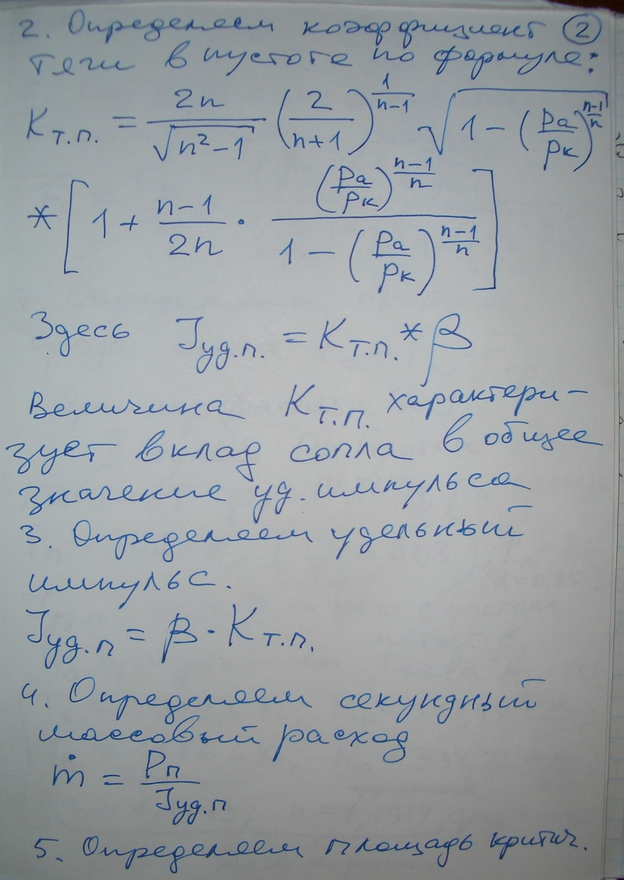 2. Определяем коэффициент (2)
тяги в пустоте по формуле:
K_{т.п.} = \frac{2n}{\sqrt{n^2-1}} \left(\frac{2}{n+1}\right)^{\frac{1}{n-1}} \sqrt{1-\left(\frac{Pa}{Pк}\right)^{\frac{n-1}{n}}}
* \left[1+\frac{n-1}{2n} \cdot \frac{\left(\frac{Pa}{Pк}\right)^{\frac{n-1}{n}}}{1-\left(\frac{Pa}{Pк}\right)^{\frac{n-1}{n}}}\right]
Здесь J_{уд.п.} = K_{т.п.} * β
Величина K_{т.п.} характери-
зует вклад сопла в общее
значение уд. импульса
3. Определяем удельный
импульс.
J_{уд.п} = β · K_{т.п.}
4. Определяем секундный
массовый расход
\dot{m} = \frac{Pп}{J_{уд.п}}
5. Определяем площадь критич.